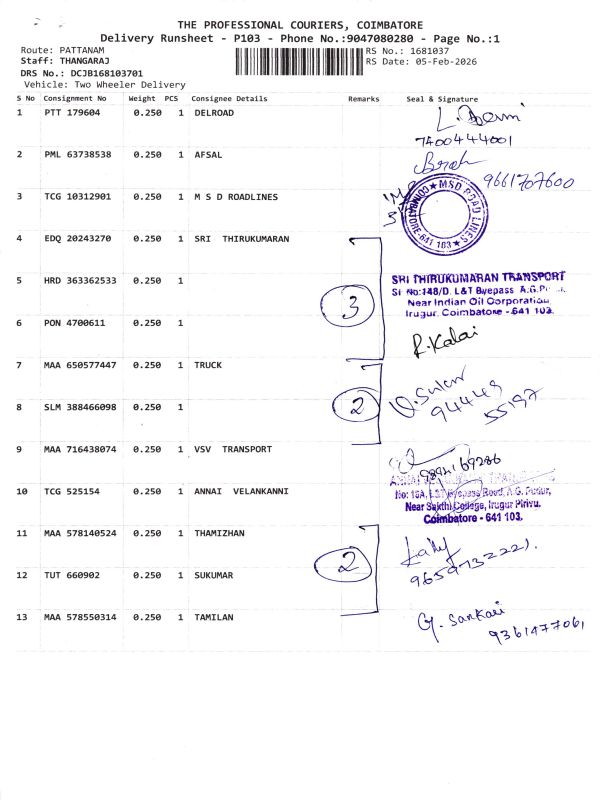 THE PROFESSIONAL COURIERS, COIMBATORE
Delivery Runsheet - P103 - Phone No.:9047080280 - Page No.:1
Route: PATTANAM
RS No.: 1681037
Staff: THANGARAJ
RS Date: 05-Feb-2026
DRS No.: DCJB168103701
Vehicle: Two Wheeler Delivery
S No Consignment No Weight PCS Consignee Details Remarks Seal & Signature
1 PTT 179604 0.250 1 DELROAD
7400444001
2 PML 63738538 0.250 1 AFSAL
9661707600
3 TCG 10312901 0.250 1 M S D ROADLINES
MSD ROAD LINES COIMBATORE-641 103
4 EDQ 20243270 0.250 1 SRI THIRUKUMARAN
5 HRD 363362533 0.250 1
3
SRI THIRUKUMARAN TRANSPORT
Sf No:148/D, L&T Byepass A.G.
Near Indian Oil Corporation
Irugur, Coimbatore - 641 103.
6 PON 4700611 0.250 1
R. Kalai
7 MAA 650577447 0.250 1 TRUCK
8 SLM 388466098 0.250 1
2
94449
55197
9 MAA 716438074 0.250 1 VSV TRANSPORT
10 TCG 525154 0.250 1 ANNAI VELANKANNI
No: 16A, L&T Byepass Road, A.G. Pudur,
Near Sakthi College, Irugur Pirivu.
Coimbatore - 641 103.
11 MAA 578140524 0.250 1 THAMIZHAN
2
12 TUT 660902 0.250 1 SUKUMAR
13 MAA 578550314 0.250 1 TAMILAN
G. Sankari
9361477061